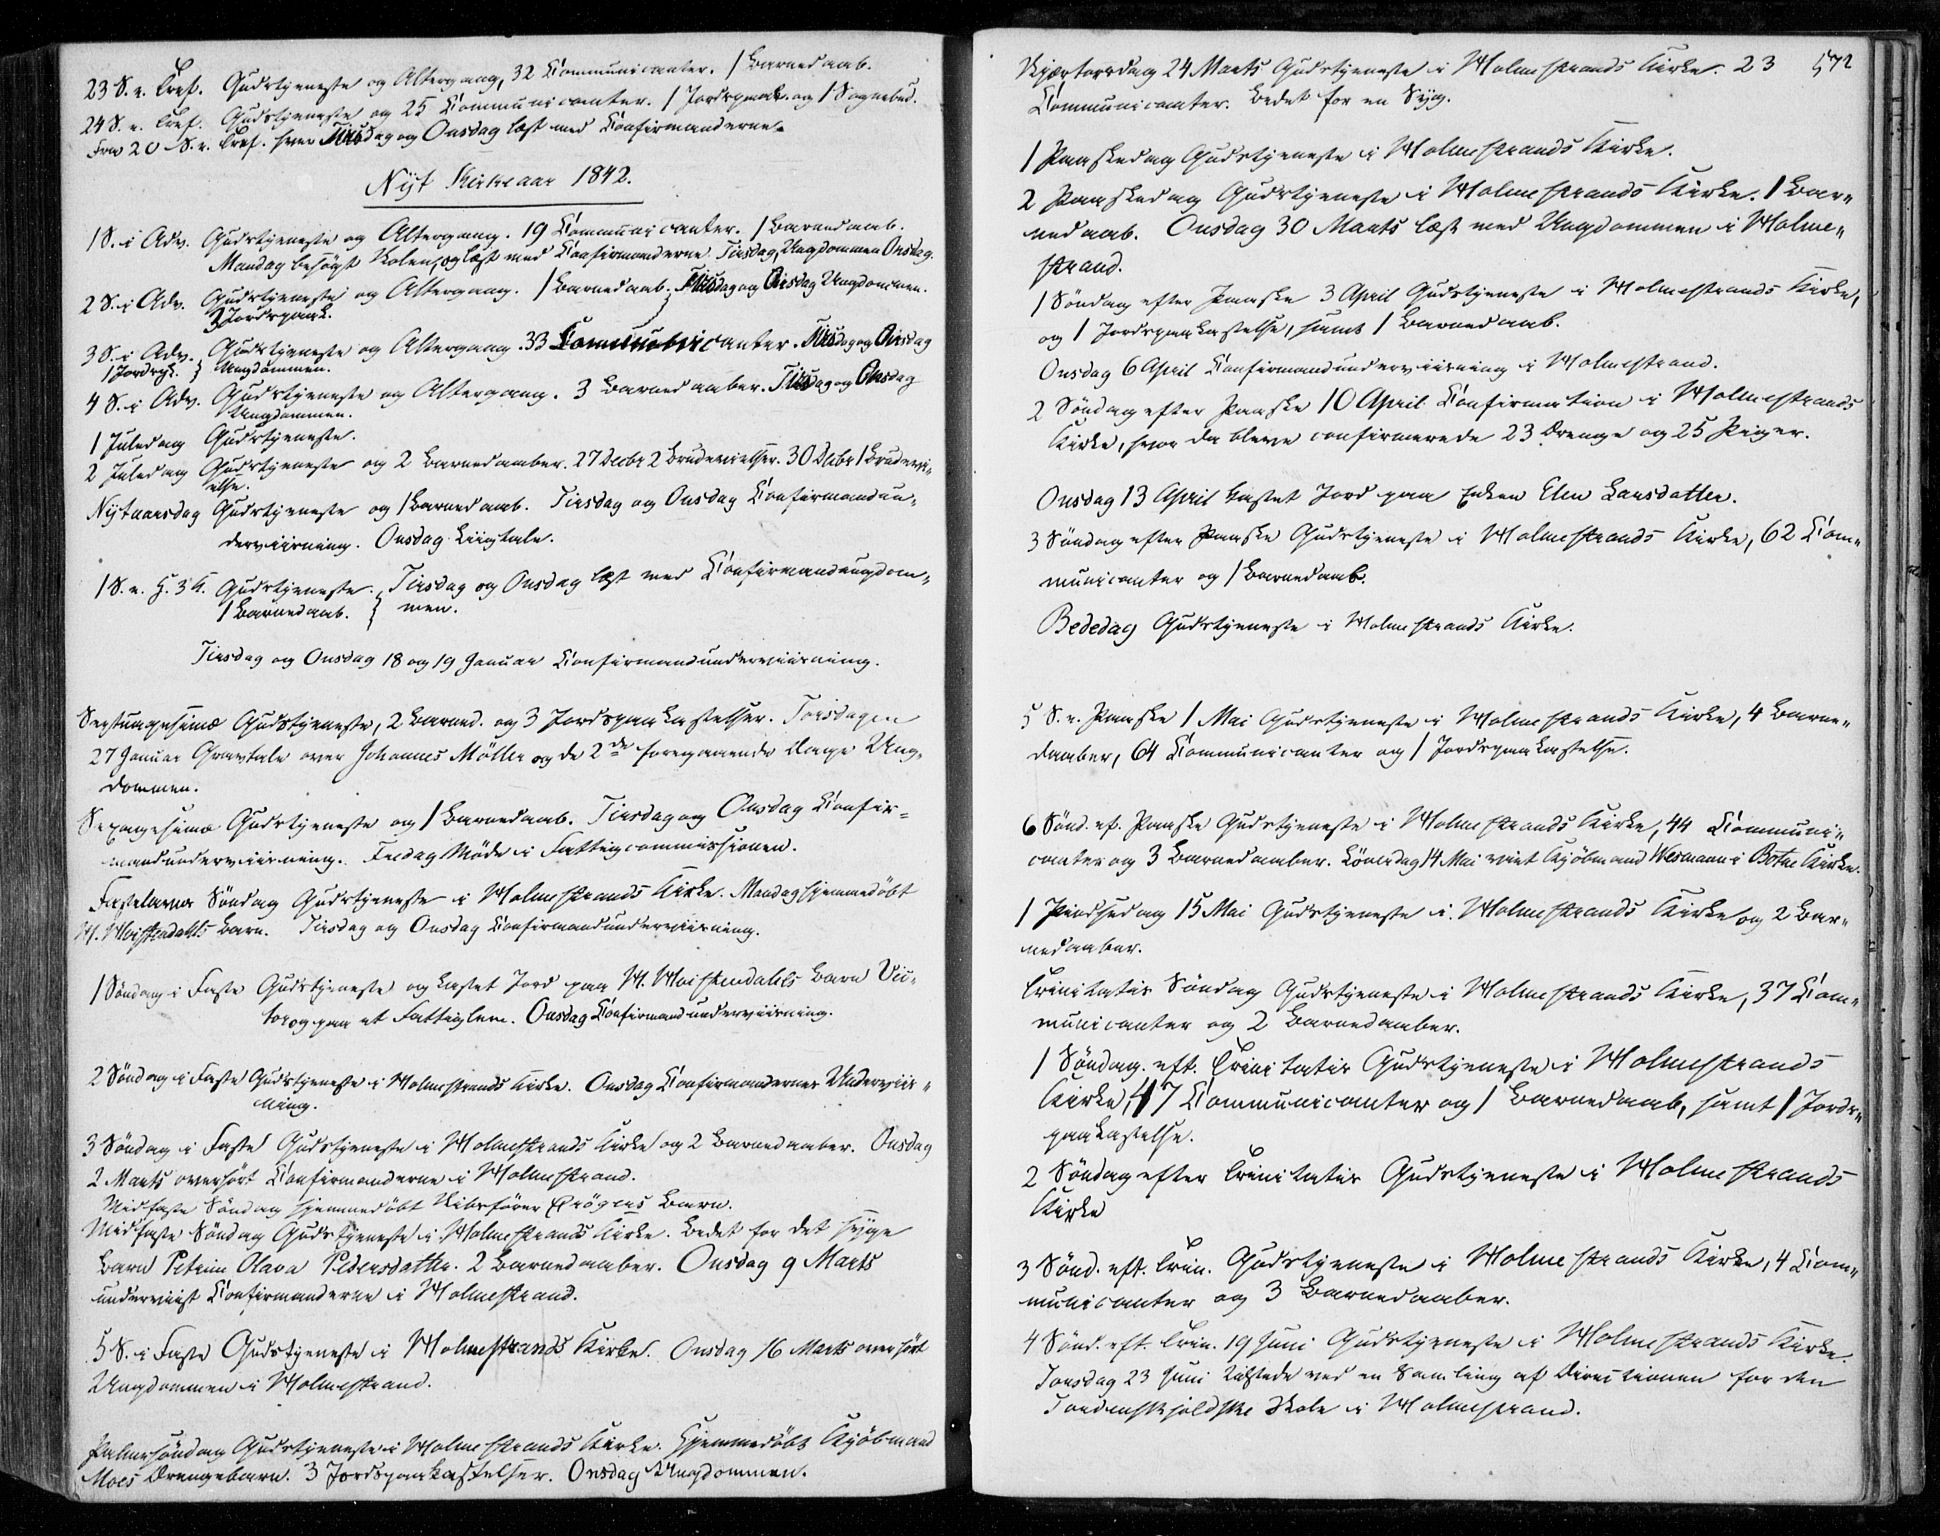 23 S. e. Tref. Gudstjeneste og Altergang, 32 Communicanter. 1 Barnedaab.
24 S. e. Tref. Gudstjeneste og 25 Communicanter. 1 Jordspaak. og 1 Sognebud.
Fra 20 S. e. Tref. hver Tirsdag og Onsdag læst med Confirmanderne.
Nyt Kirkeaar 1842.
1 S. i Adv. Gudstjeneste og Altergang. 19 Communicanter. 1 Barnedaab.
Mandag besögt Skolen, og læst med Confirmanderne Tirsdag, Ungdommen Onsdag.
2 S. i Adv. Gudstjeneste og Altergang. 1 Barnedaab. Tirsdag og Onsdag Ungdommen.
3 Jordspaak.
3 S. i Adv. Gudstjeneste og Altergang. 33 Communicanter. Tirsdag og Onsdag
1 Jordspk. } Ungdommen.
4 S. i Adv. Gudstjeneste og Altergang. 3 Barnedaaber. Tirsdag og Onsdag
Ungdommen.
1 Juledag Gudstjeneste.
2 Juledag Gudstjeneste og 2 Barnedaaber. 27 Decbr 2 Brudevielser. 30 Decbr 1 Brudevi-
else.
Nytaarsdag Gudstjeneste og 1 Barnedaab. Tirsdag og Onsdag Confirmandun-
derviisning. Onsdag Liigtale.
1 S. e. H. 3 K. Gudstjeneste. } Tirsdag og Onsdag læst med Confirmandungdom-
1 Barnedaab. } men.
Tirsdag og Onsdag 18 og 19 Januar Confirmandunderviisning.
Septuagesima Gudstjeneste, 2 Barned. og 3 Jordspaakastelser. Torsdagen
27 Januar Gravtale over Johannes Möller og de 2de foregaaende Dage Ung-
dommen.
Sexagesima Gudstjeneste og 1 Barnedaab. Tirsdag og Onsdag Confir-
mandunderviisning. Fredag Möde i Fattigcommissionen.
Fastelavns Söndag Gudstjeneste i Holmestrands Kirke. Mandag hjemmedöbt
Barn. Tirsdag og Onsdag Confirmandunderviisning.
1 Söndag i Faste Gudstjeneste og kastet Jord paa Barn Vic-
tor og paa et Fattiglem. Onsdag Confirmandunderviisning.
2 Söndag i Faste Gudstjeneste i Holmestrands Kirke. Onsdag Confirmandernes Underviis-
ning.
3 Söndag i Faste Gudstjeneste i Holmestrands Kirke og 2 Barnedaaber. Onsdag
2 Marts overhört Confirmanderne i Holmestrand.
Midfaste Söndag hjemmedöbt Barn.
Midfaste Söndag Gudstjeneste i Holmestrands Kirke. Bedet for det syge
Barn Petrine Olava Pedersdatter. 2 Barnedaaber. Onsdag 9 Marts
underviist Confirmanderne i Holmestrand.
5 S. i Faste Gudstjeneste i Holmestrands Kirke. Onsdag 16 Marts overhört
Ungdommen i Holmestrand.
Palmesöndag Gudstjeneste i Holmestrands Kirke. Hjemmedöbt Kjöbmand
Moes Drengebarn. 3 Jordspaakastelser. Onsdag Ungdommen.
572
Skjærtorsdag 24 Marts Gudstjeneste i Holmestrands Kirke. 23
Communicanter. Bedet for en Syg.
1 Paaskedag Gudstjeneste i Holmestrands Kirke.
2 Paaskedag Gudstjeneste i Holmestrands Kirke. 1 Bar-
nedaab. Onsdag 30 Marts læst med Ungdommen i Holme-
strand.
1 Söndag efter Paaske 3 April Gudstjeneste i Holmestrands Kirke,
og 1 Jordspaakastelse, samt 1 Barnedaab.
Onsdag 6 April Confirmandunderviisning i Holmestrand.
2 Söndag efter Paaske 10 April Confirmation i Holmestrands
Kirke, hvor da bleve confirmerede 23 Drenge og 25 Piger.
Onsdag 13 April kastet Jord paa Enken Elen Larsdatter.
3 Söndag efter Paaske Gudstjeneste i Holmestrands Kirke, 62 Com-
municanter og 1 Barnedaab.
Bededag Gudstjeneste i Holmestrands Kirke.
5 S. e. Paaske 1 Mai Gudstjeneste i Holmestrands Kirke, 4 Barne-
daaber, 64 Communicanter og 1 Jordspaakastelse.
6 Sönd. ef. Paaske Gudstjeneste i Holmestrands Kirke, 44 Communi-
canter og 3 Barnedaaber. Löverdag 14 Mai viet Kjöbmand Wesmann i Botne Kirke.
1 Pindsedag 15 Mai Gudstjeneste i Holmestrands Kirke og 2 Bar-
nedaaber.
Trinitatis Söndag Gudstjeneste i Holmestrands Kirke, 37 Com-
municanter og 2 Barnedaaber.
1 Söndag eft. Trinitatis Gudstjeneste i Holmestrands
Kirke, 47 Communicanter og 1 Barnedaab, samt 1 Jords-
paakastelse.
2 Söndag efter Trinitatis Gudstjeneste i Holmestrands
Kirke
3 Sönd. eft. Trin. Gudstjeneste i Holmestrands Kirke, 4 Com-
municanter og 3 Barnedaaber.
4 Sönd. eft. Trin. 19 Juni Gudstjeneste i Holmestrands Kirke.
Torsdag 23 Juni tilstede ved en Samling af Directionen for den
Tordenskjoldske Skole i Holmestrand.